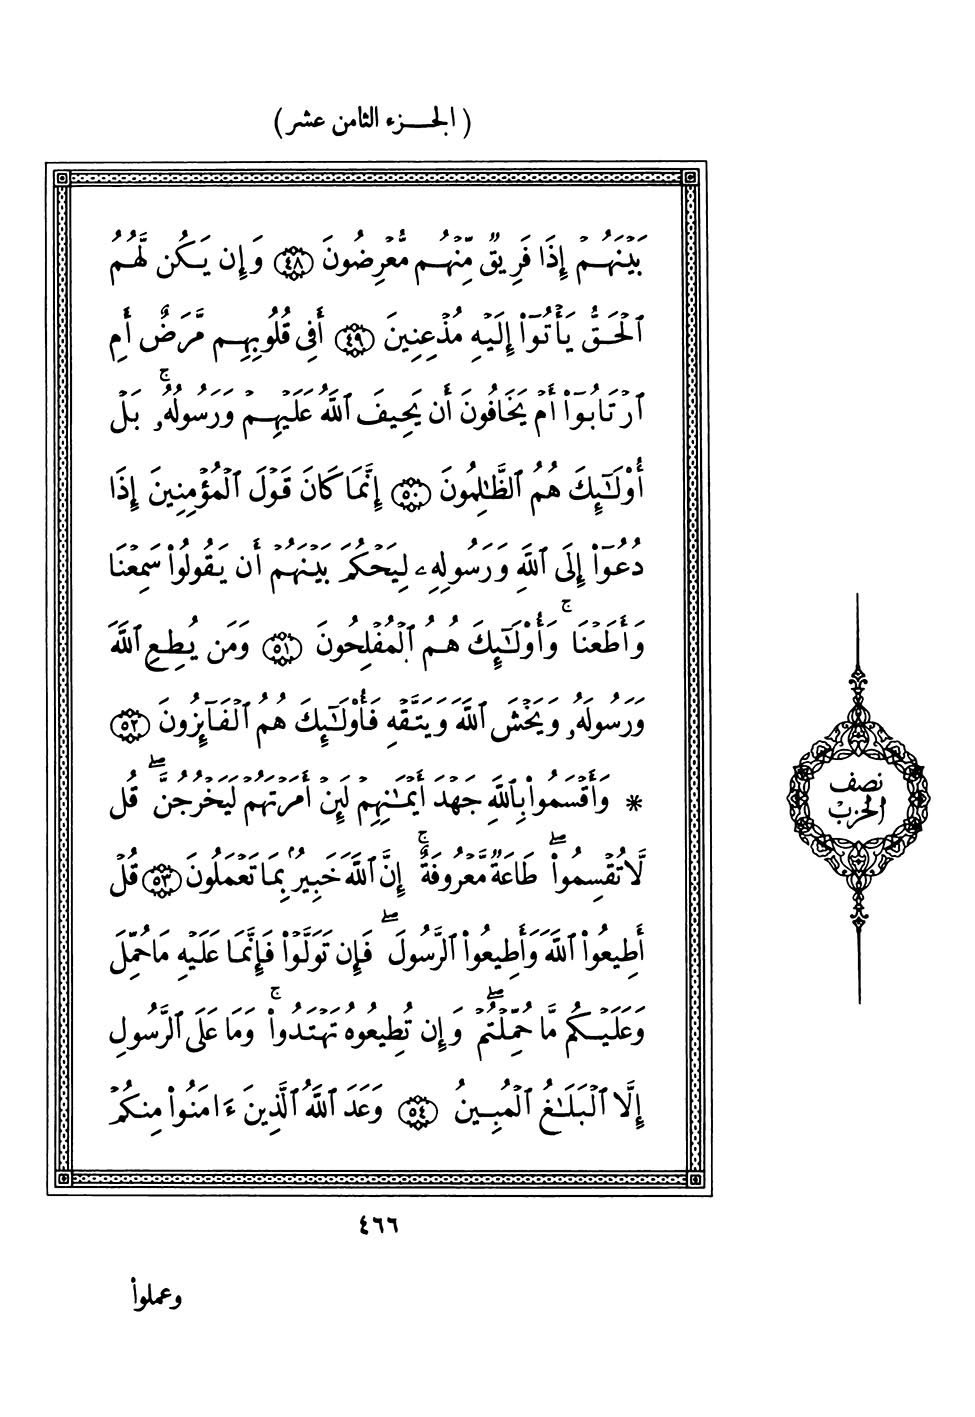 ( الجزء الثامن عشر )
بَيْنَهُمْ إِذَا فَرِيقٌ مِّنْهُم مُّعْرِضُونَ ٤٨ وَإِن يَكُن لَّهُمُ
ٱلْحَقُّ يَأْتُوٓا۟ إِلَيْهِ مُذْعِنِينَ ٤٩ أَفِى قُلُوبِهِم مَّرَضٌ أَمِ
ٱرْتَابُوٓا۟ أَمْ يَخَافُونَ أَن يَحِيفَ ٱللَّهُ عَلَيْهِمْ وَرَسُولُهُۥ ۚ بَلْ
أُو۟لَٰٓئِكَ هُمُ ٱلظَّٰلِمُونَ ٥٠ إِنَّمَا كَانَ قَوْلَ ٱلْمُؤْمِنِينَ إِذَا
دُعُوٓا۟ إِلَى ٱللَّهِ وَرَسُولِهِۦ لِيَحْكُمَ بَيْنَهُمْ أَن يَقُولُوا۟ سَمِعْنَا
وَأَطَعْنَا ۚ وَأُو۟لَٰٓئِكَ هُمُ ٱلْمُفْلِحُونَ ٥١ وَمَن يُطِعِ ٱللَّهَ
وَرَسُولَهُۥ وَيَخْشَ ٱللَّهَ وَيَتَّقْهِ فَأُو۟لَٰٓئِكَ هُمُ ٱلْفَآئِزُونَ ٥٢
* وَأَقْسَمُوا۟ بِٱللَّهِ جَهْدَ أَيْمَٰنِهِمْ لَئِنْ أَمَرْتَهُمْ لَيَخْرُجُنَّ ۖ قُل
لَّا تُقْسِمُوا۟ ۖ طَاعَةٌ مَّعْرُوفَةٌ ۚ إِنَّ ٱللَّهَ خَبِيرٌۢ بِمَا تَعْمَلُونَ ٥٣ قُلْ
أَطِيعُوا۟ ٱللَّهَ وَأَطِيعُوا۟ ٱلرَّسُولَ ۖ فَإِن تَوَلَّوْا۟ فَإِنَّمَا عَلَيْهِ مَا حُمِّلَ
وَعَلَيْكُم مَّا حُمِّلْتُمْ ۖ وَإِن تُطِيعُوهُ تَهْتَدُوا۟ ۚ وَمَا عَلَى ٱلرَّسُولِ
إِلَّا ٱلْبَلَٰغُ ٱلْمُبِينُ ٥٤ وَعَدَ ٱللَّهُ ٱلَّذِينَ ءَامَنُوا۟ مِنكُمْ
نصف
الحزب
٤٦٦
وعملوا۟